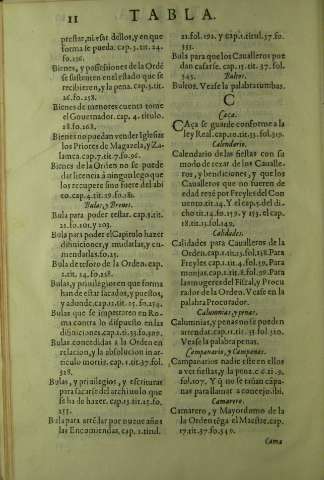 II TABLA.
prestar, ni vsar dellos, y en que
forma se pueda. cap.3.tit.24.
fo.236.
Bienes, y possessiones de la Ordē
se sustenten en el estado que se
recibieren, y la pena. cap.5.tit.
26.fo.258.
Bienes de menores cuenta tome
el Gouernador. cap. 4. titulo.
28.fo.268.
Bienes no puedan vender Iglesias
los Priores de Magazela, y Za-
lamea. cap.7.tit.7.fo.96.
Bienes de la Orden no se puede
dar licencia à ningun lego que
los recupere sino fuere del abi
to. cap.4.tit.29.fo.281.
Bulas, y Breues.
Bula para poder testar. cap.3.tit.
21.fo.201. y 203.
Bula para poder el Capitulo hazer
difiniciones, y mudarlas, y en-
mendarlas. fo.25.
Bula de tesoro de la Orden. cap.
2.tit. 24. fo.228.
Bulas, y priuilegios en que forma
han de estar sacados, y puestos,
y adonde. cap.13.tit. 15. fo.154.
Bulas que se impetraren en Ro-
ma contra lo dispuesto en las
difiniciones. cap.16.ti.53.fo.420.
Bulas concedidas a la Orden en
relacion, y la absolucion in ar-
ticulo mortis. cap.1.tit.37.fol.
328.
Bulas, y priuilegios, y escrituras
para sacarse del archiuo lo que
se ha de hazer. cap.13.tit.15.fo.
155.
Bula para arrēdar por nueue años
las Encomiendas. cap. 1. titul.
21.fol.192. y cap.1.titul.37.fo.
335.
Bula para que los Caualleros pue
dan casarse. cap.15. tit. 37. fol.
345.
Bultos.
Bultos. Vease la palabra tumbas.
C
Caça.
CAça se guarde conforme a la
ley Real. cap.10.tit.35.fol.319.
Calendario.
Calendario de las fiestas con su
modo de rezar de los Caualle-
ros, y bendiciones, y que los
Caualleros que no fueren de
edad rezē por Freyles del Con
uento. tit.14. Y el cap.5. del di-
cho tit.14.fo.139. y 153. el cap.
18.tit.13.fol.149.
Calidades.
Calidades para Caualleros de la
Orden. cap.1.tit.13.fol.138. Para
Freyles cap.1.tit.14.fol.39. Para
monjas. cap.1.tit.8.fol.99. Para
las mugeres del Fiscal, y Procu
rador de la Orden. Vease en la
palabra Procurador.
Calumnias, y penas.
Calumnias, y penas no se pueden
arrendar. cap.11.tit. 35.fol.320.
Vease la palabra penas.
Campanario, y Campanas.
Campanarios nadie este en ellos
a ver fiestas, y la pena. c.6.ti.9.
fol.107. Y q̄ no se tañan cāpa-
nas para llamar a concejo. ibi.
Camarero.
Camarero, y Mayordomo de la
Orden tēga el Maestre. cap.
17.tit.37.fo.349.
Cama